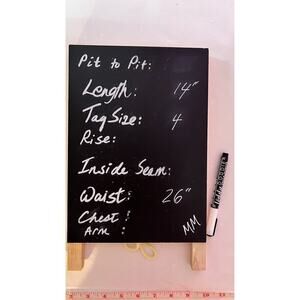 Pit to Pit:
Length: 14"
Tag Size: 4
Rise:
Inside Seam:
Waist: 26"
Chest:
Arm :
MM